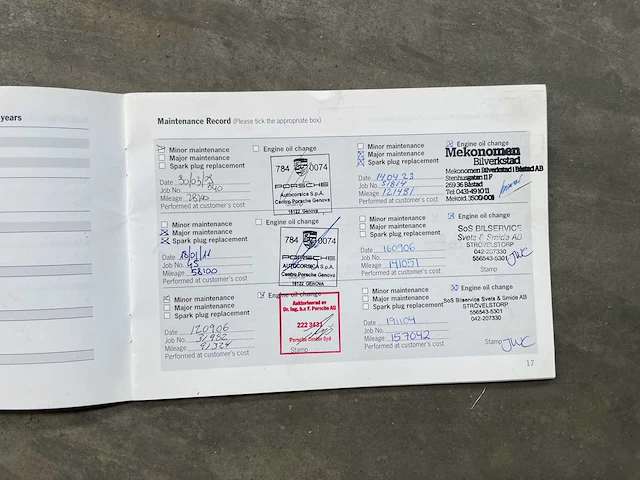 years
Maintenance Record (Please tick the appropriate box)
Minor maintenance
Major maintenance
Spark plug replacement
Engine oil change
Date 30/03/09
Job No. 240
Mileage
Performed at customer's cost
784 0074
PORSCHE
Autocorsica S.p.A.
Centro Porsche Genova
16122 Genova
Minor maintenance
Major maintenance
Spark plug replacement
Engine oil change
Date
Job No. 45
Mileage 58100
Performed at customer's cost
784 0074
PORSCHE
AUTOCORSICA S.p.A.
Centro Porsche Genova
16122 GENOVA
Minor maintenance
Major maintenance
Spark plug replacement
Engine oil change
Date 120906
Job No. 31482
Mileage 91324
Performed at customer's cost
Auktoriserad av
Dr. Ing. h.c F. Porsche AG
222 3431
Porsche Center Syd
Stamp
Minor maintenance
Major maintenance
Spark plug replacement
Engine oil change
Date 14.04.23
Job No. 51814
Mileage 121481
Performed at customer's cost
Mekonomen
Bilverkstad
Mekonomen Bilverkstad i Båstad AB
Stenhusgatan 11 F
269 36 Båstad
Tel. 0431-49 10 11
Mekoid. 3509-003
Minor maintenance
Major maintenance
Spark plug replacement
Engine oil change
Date 160906
Job No.
Mileage 141051
Performed at customer's cost
SoS BILSERVICE
Svets & Smide AB
STRÖVELSTORP
556543-5301
Stamp
JWC
Minor maintenance
Major maintenance
Spark plug replacement
Engine oil change
Date 191104
Job No.
Mileage 157042
Performed at customer's cost
SoS Bilservice Svets & Smide AB
STRÖVELSTORP
556543-5301
042-207330
Stamp JWC
17